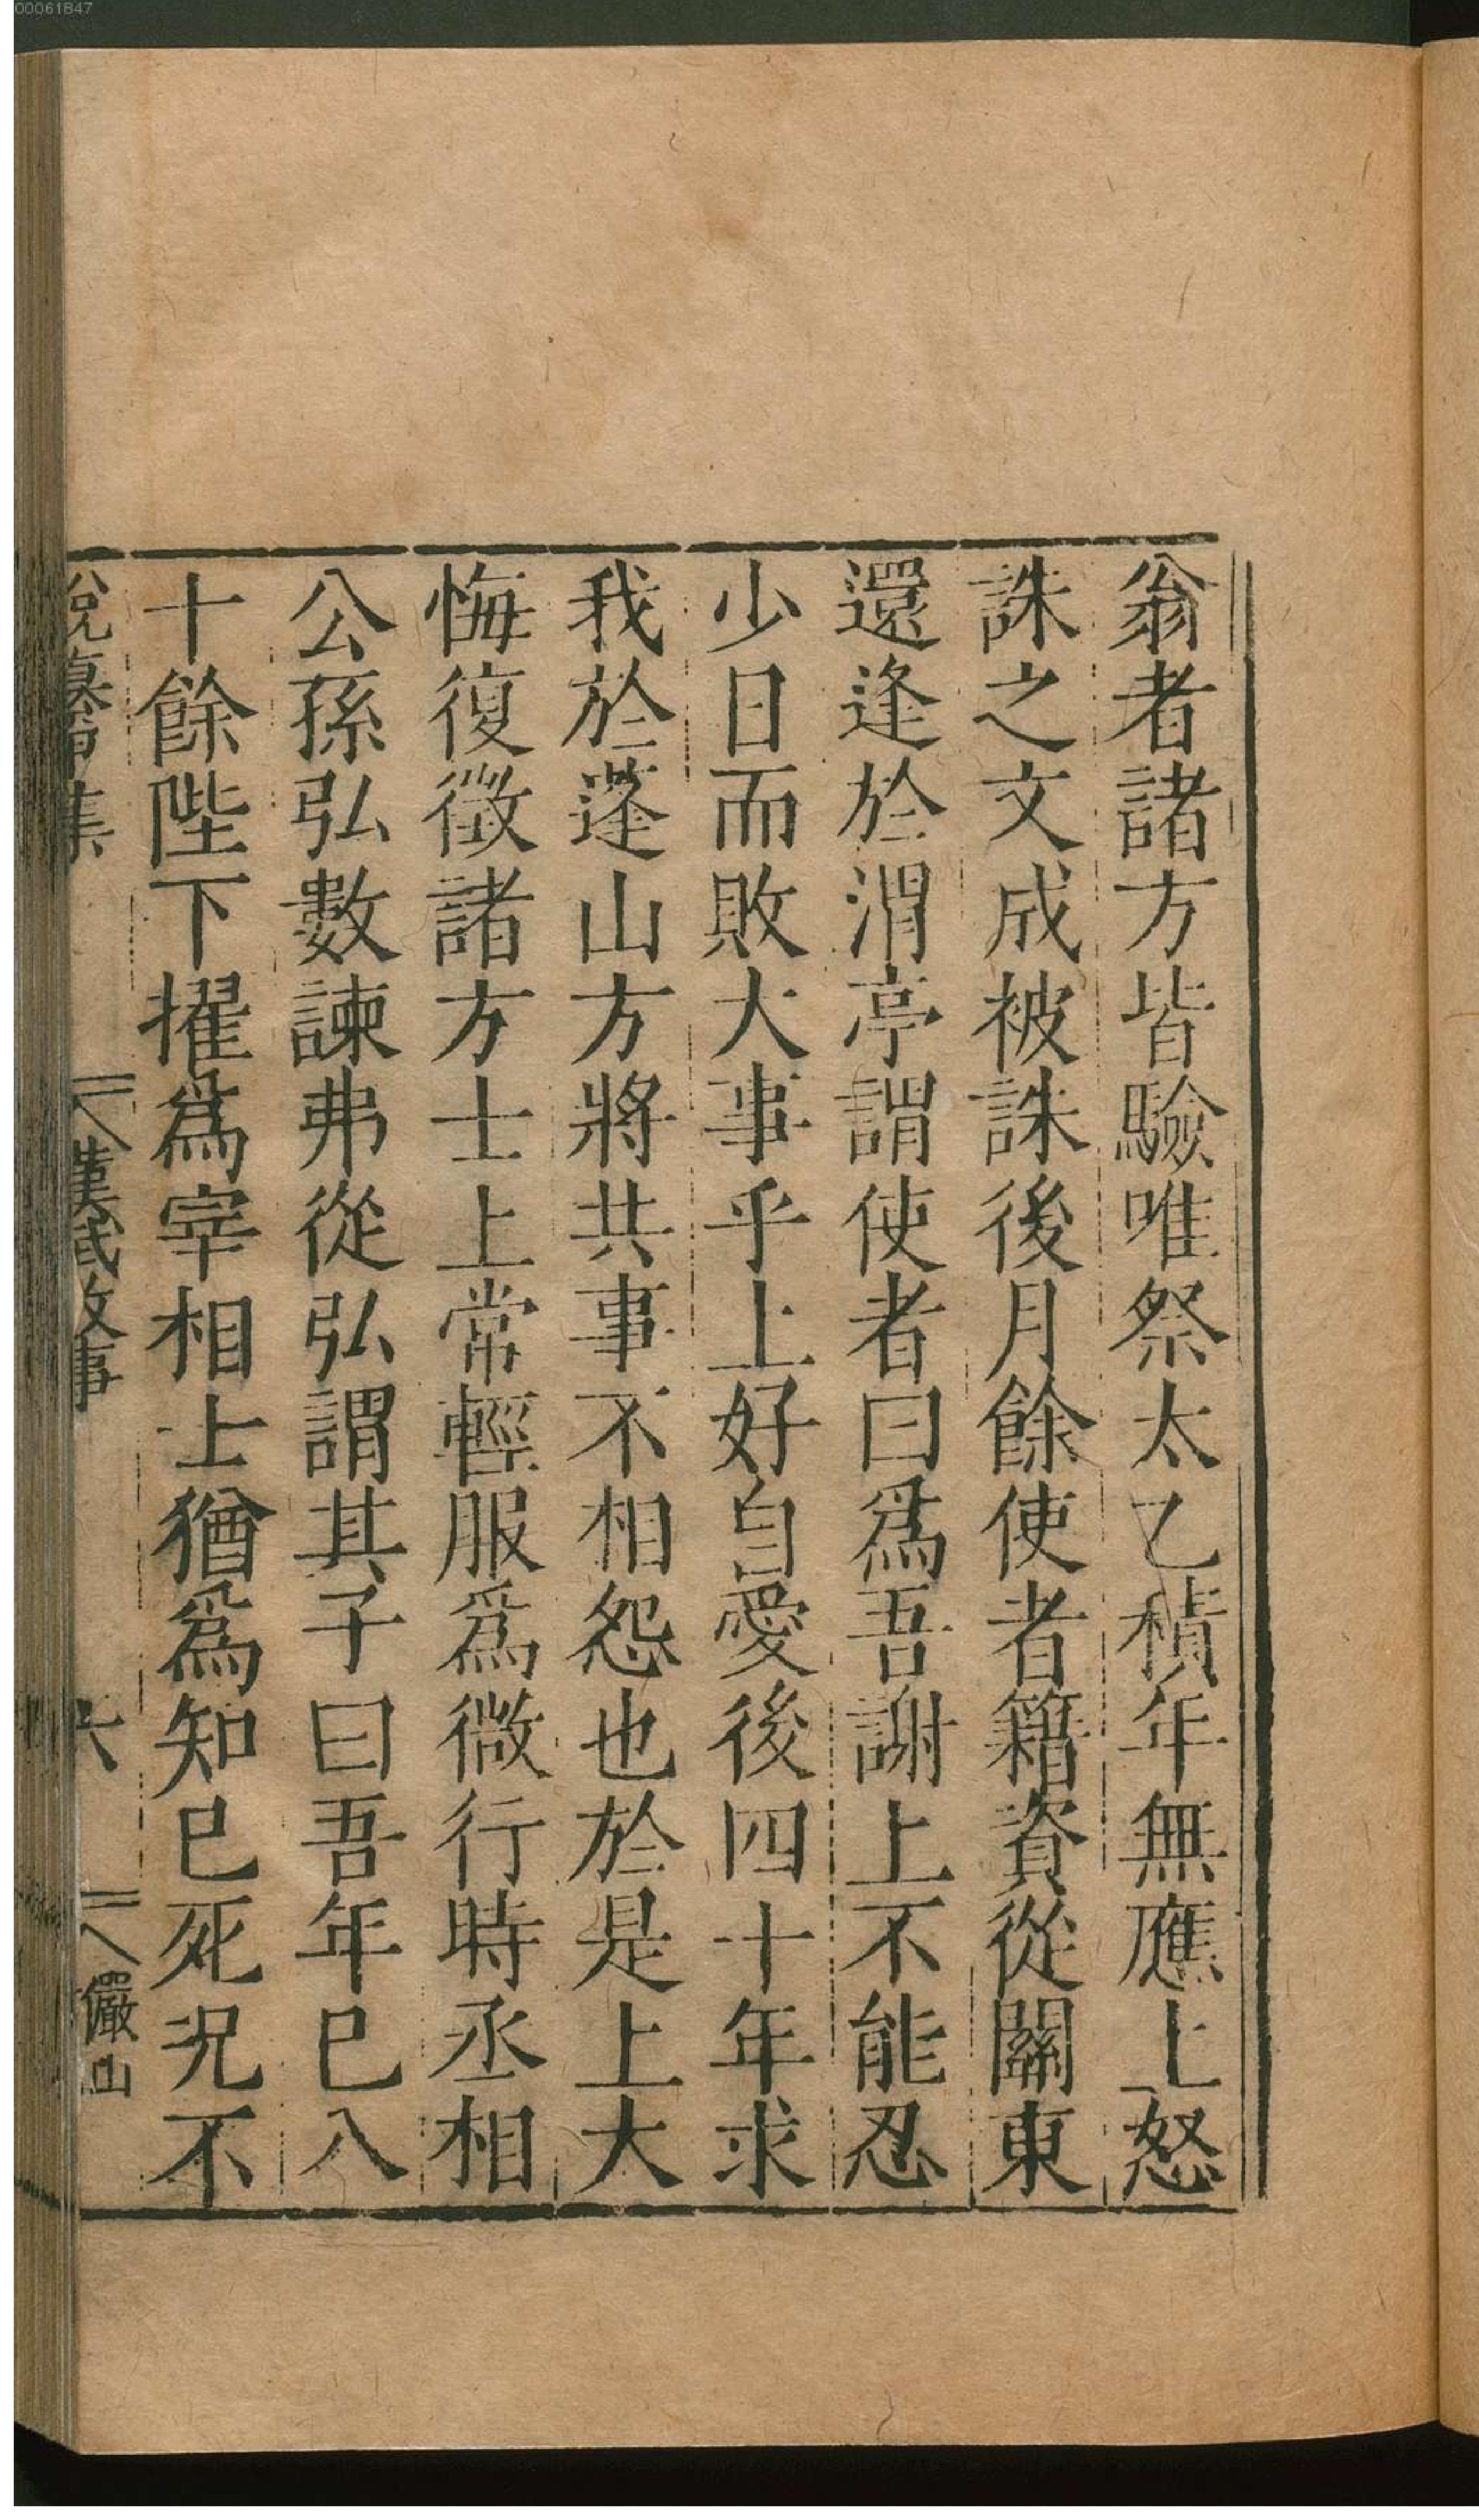 00061847
翁者諸方皆驗唯祭太乙積年無應上怒
誅之文成被誅後月餘使者籍資從關東
還逢於渭亭謂使者曰爲吾謝上不能忍
少日而敗大事乎上好自愛後四十年求
我於蓬山方將共事不相怨也於是上大
悔復徵諸方士上常輕服爲微行時丞相
公孫弘數諫弗從弘謂其子曰吾年已八
十餘陛下擢爲宰相上猶爲知已死况不
說纂集 漢武故事 六 儼山